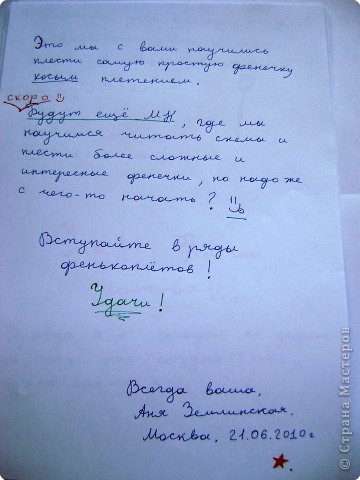 Это мы с вами научились
плести самую простую фенечку
косым плетением.
скоро
Будут ещё МК, где мы
научимся читать схемы и
плести более сложные и
интересные фенечки, но надо же
с чего-то начать?
Вступайте в ряды
фенькоплётов!
Удачи!
Всегда ваша,
Аня Землинская.
Москва, 21.06.2010г
© Страна Мастеров